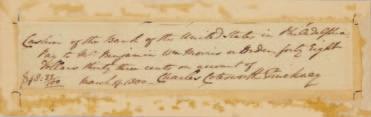 Cashier of the Bank of the United States in Philadelphia
Pay to Mr. Benjamin Wm. Morris or Order forty Eight
Dollars thirty three cents on account of
$48.33/100 March 1800 Charles Cotesworth Pinckney